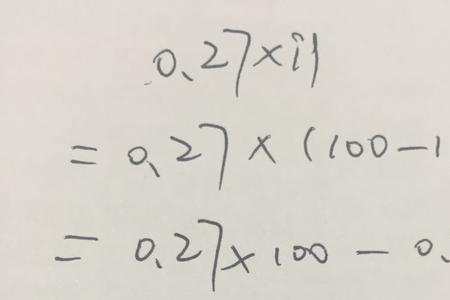 0.27×
= 0.27×(100-1
= 0.27×100-0.